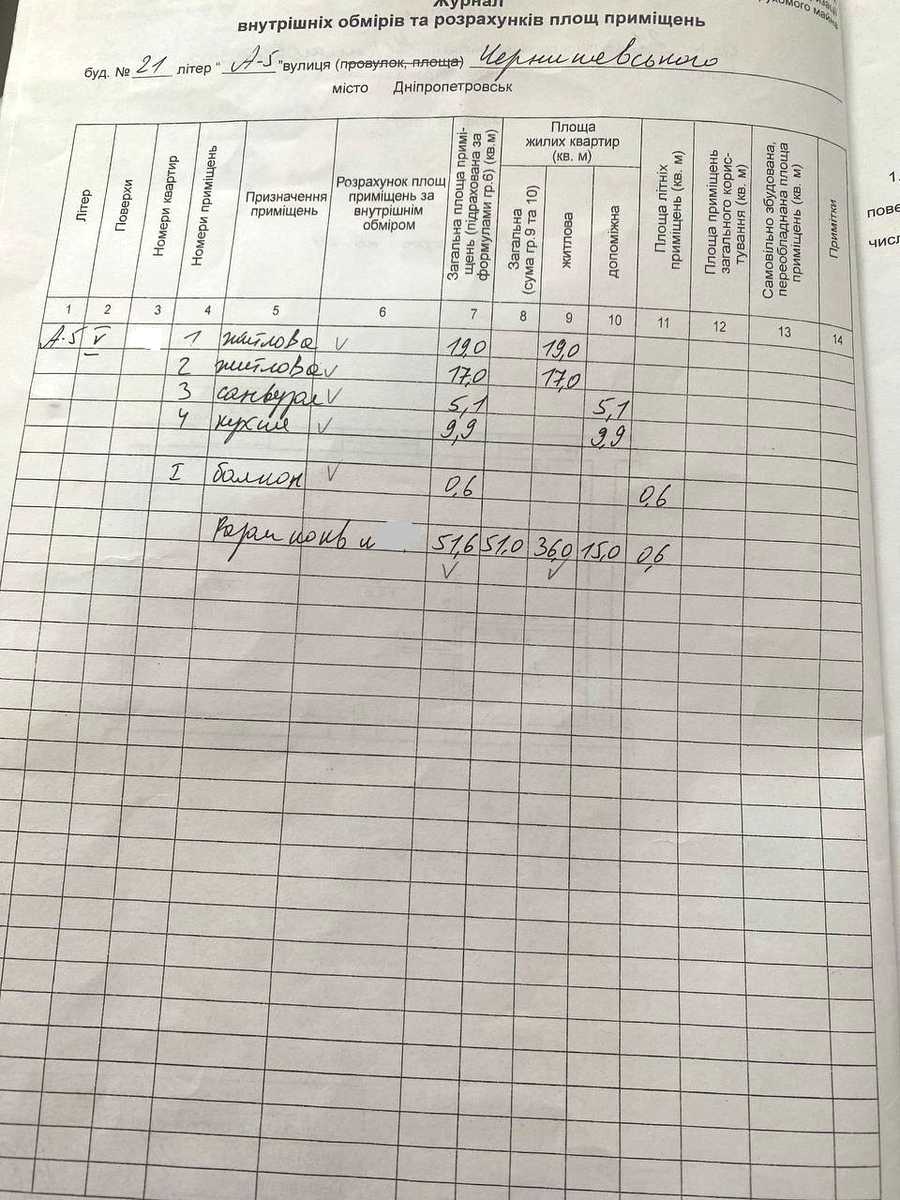 Журнал
внутрішніх обмірів та розрахунків площ приміщень
буд. № 21 літер " А-5 "вулиця (провулок, площа) Чернишевського
місто Дніпропетровськ
Літер
Поверхи
Номери квартир
Номери приміщень
Призначення
приміщень
Розрахунок площ
приміщень за
внутрішнім
обміром
Загальна площа примі-
щень (підрахована за
формулами гр.6) (кв.м)
Площа
жилих квартир
(кв. м)
Загальна
(сума гр.9 та 10)
житлова
допоміжна
Площа літніх
приміщень (кв. м)
Площа приміщень
загального корис-
тування (кв. м)
Самовільно збудована,
переобладнана площа
приміщень (кв. м)
Примітки
1 2 3 4 5 6 7 8 9 10 11 12 13 14
А-5 V 1 житлова 19,0 19,0
2 житлова 17,0 17,0
3 санвузол 5,1 5,1
4 кухня 9,9 9,9
I балкон 0,6 0,6
Разом по кв 51,6 51,0 36,0 15,0 0,6
1.
пове
числ